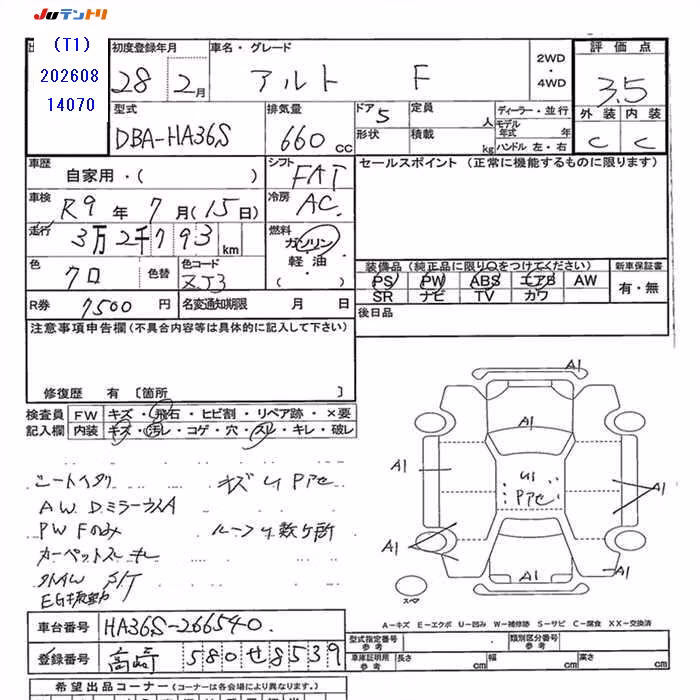 JUテントリ
(T1)
202608
14070
初度登録年月
28 2月
車名・グレード
アルト F
2WD
・
4WD
評価点
3.5
外装 内装
C C
型式
DBA-HA36S
排気量
660 cc
ドア 5
定員 人
形状
積載 kg
ディーラー・並行
モデル年式 年
ハンドル 左・右
車歴
自家用・( )
シフト
FAT
セールスポイント (正常に機能するものに限ります)
車検
R9年 7月(15日)
冷房
AC
走行
3万2千793 km
燃料
ガソリン
軽油・
( )
色
クロ
色替
色コード
ZJ3
装備品(純正品に限り○をつけてください)
新車保証書
PS PW ABS エアB AW
SR ナビ TV カワ
有・無
R券 7500 円
名変通知期限 月 日
後日品
注意事項申告欄(不具合内容等は具体的に記入して下さい)
修復歴 有 〔箇所 〕
検査員 FW キズ・飛石・ヒビ割・リペア跡・×要
記入欄 内装 キズ・汚レ・コゲ・穴・スレ・キレ・破レ
シートヘタリ
キズ U Pアセ
AW DミラーウスA
PW Fのみ
ルーフU数ヶ所
カーペットスレ キレ
S/T
EG振動
A1
A1
A1
U1
Pアセ
A1
A1
A1
A1
A1
スペア
A－キズ E－エクボ U－凹み W－補修跡 S－サビ C－腐食 XX－交換済
車台番号 HA36S-266540
型式指定番号 参考
類別区分番号 参考
登録番号 高崎 580 せ 8539
車庫証明用 参考 長さ cm 幅 cm 高さ cm
希望出品コーナー(コーナーは各会場により異なります。)